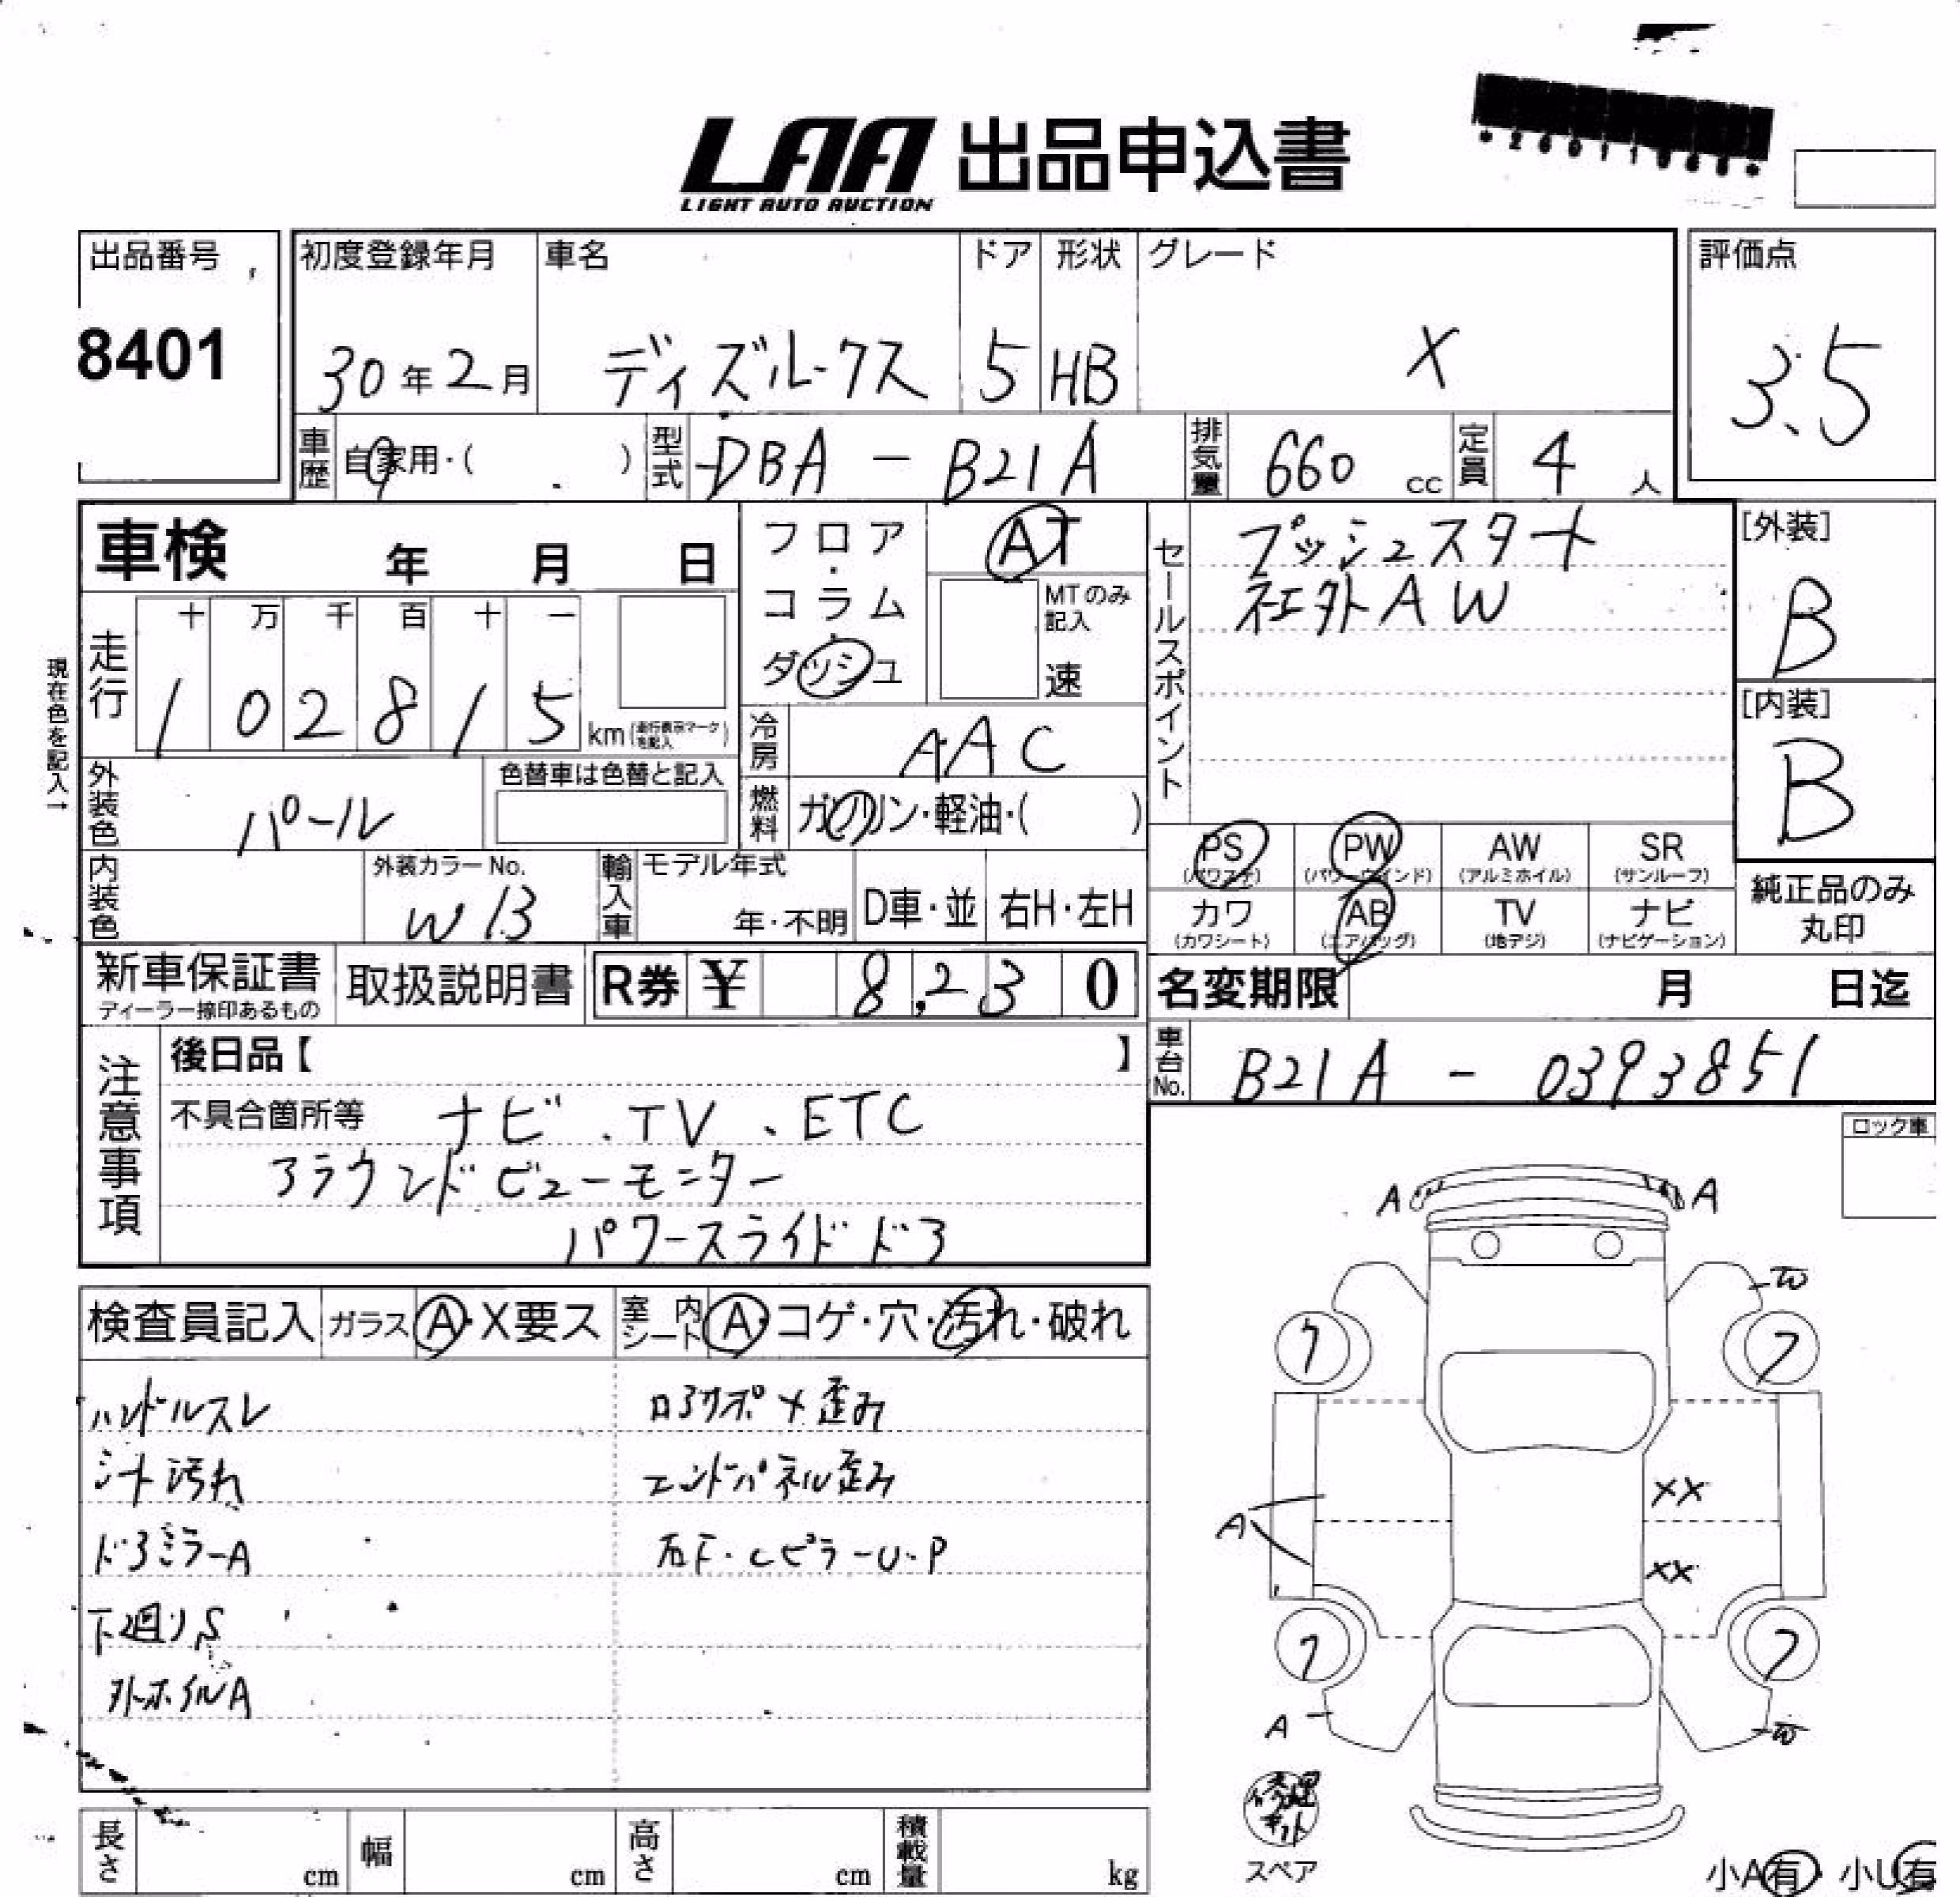 LAA 出品申込書
LIGHT AUTO AUCTION
出品番号
8401
初度登録年月
30年2月
車名
ディズルークス
ドア
5
形状
HB
グレード
X
評価点
3.5
車歴
自家用・( )
型式
DBA - B21A
排気量
660 cc
定員
4 人
車検 年 月 日
フロア・コラム・ダッシュ
AT
MTのみ記入
速
セールスポイント
プッシュスタート
社外AW
[外装]
B
[内装]
B
現在色を記入→
走行
十 万 千 百 十 一
1 0 2 8 1 5 km (走行表示マークを記入)
冷房
AAC
外装色
パール
色替車は色替と記入
燃料
ガソリン・軽油・( )
内装色
外装カラーNo.
W13
輸入車
モデル年式
年・不明
D車・並
右H・左H
PS (パワステ)
PW (パワーウインド)
AW (アルミホイル)
SR (サンルーフ)
カワ (カワシート)
AB (エアバッグ)
TV (地デジ)
ナビ (ナビゲーション)
純正品のみ
丸印
新車保証書
ディーラー捺印あるもの
取扱説明書
R券 ¥ 8,230
名変期限 月 日迄
車台No.
B21A - 0393851
注意事項
後日品【 】
不具合箇所等 ナビ、TV、ETC
アラウンドビューモニター
パワースライドドア
ロック車
検査員記入 ガラス A・X要ス 室内シート A・コゲ・穴・汚れ・破れ
ハンドルスレ
シート汚れ
ドアミラーA
下廻りS
外ホイルA
エンドパネル歪み
右F・CピラーU・P
A A
W
フ フ
A
XX
XX
フ フ
A
W
修理キット
スペア
小A有・小U有
長さ cm
幅 cm
高さ cm
積載量 kg